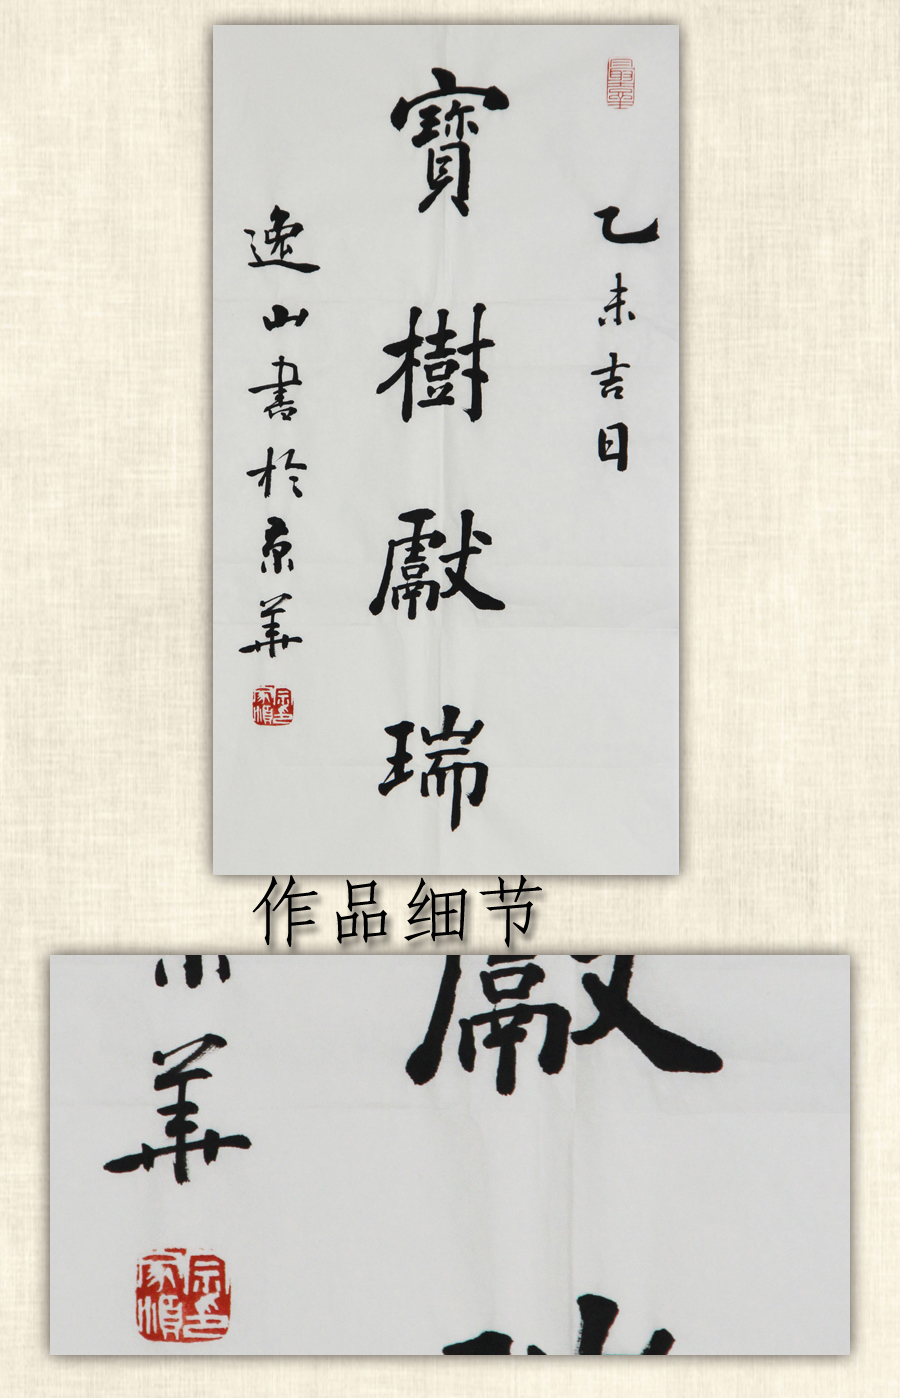 乙未吉日
寶樹獻瑞
逸山書於京華
作品细节
華
獻